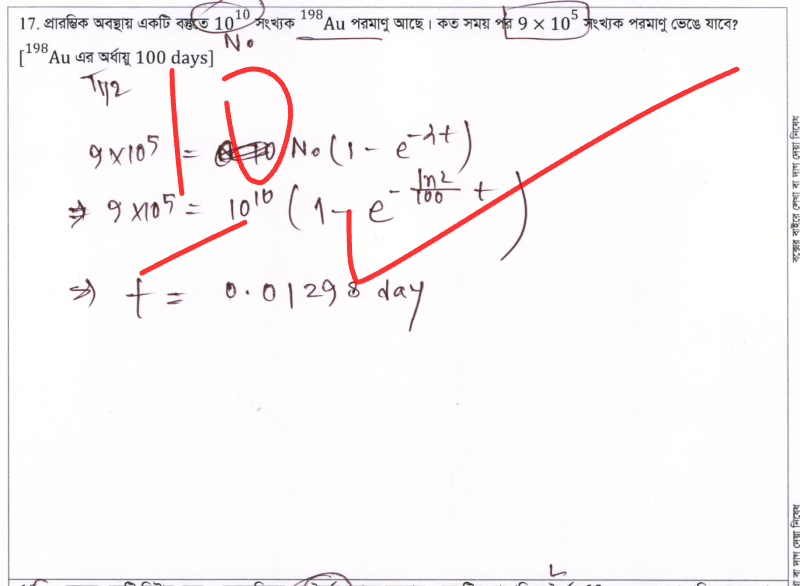 17. প্রারম্ভিক অবস্থায় একটি বস্তুতে 10¹⁰ সংখ্যক ¹⁹⁸Au পরমাণু আছে। কত সময় পর 9 × 10⁵ সংখ্যক পরমাণু ভেঙে যাবে?
N₀
[¹⁹⁸Au এর অর্ধায়ু 100 days]
T1/2
9×10⁵ = N₀(1 - e^{-λt})
⇒ 9×10⁵ = 10¹⁰ (1 - e^{-\frac{ln2}{100} t})
⇒ t = 0.01298 day
10
বক্সের বাইরে লেখা বা দাগ দেয়া নিষেধ
বা দাগ দেয়া নিষেধ